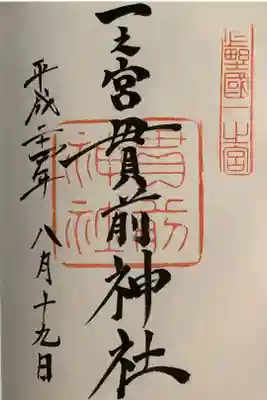 上野國一之宮
一之宮貫前神社
貫前
神社
平成二十四年八月十九日